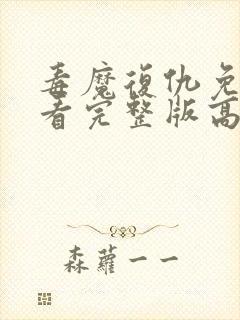 毒魔復仇免
看完整版高
森蘿一一